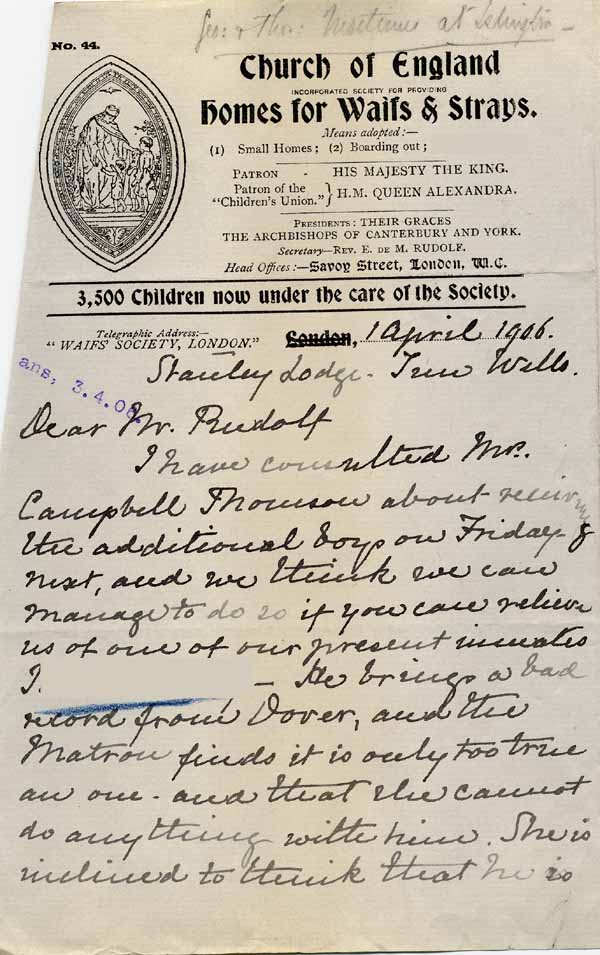 Geo: & Thos:          at
No. 44.
Church of England
INCORPORATED SOCIETY FOR PROVIDING
Homes for Waifs & Strays.
Means adopted:—
(1) Small Homes; (2) Boarding out;
PATRON - HIS MAJESTY THE KING.
Patron of the "Children's Union." } H.M. QUEEN ALEXANDRA.
PRESIDENTS: THEIR GRACES
THE ARCHBISHOPS OF CANTERBURY AND YORK.
Secretary—REV. E. DE M. RUDOLF.
Head Offices:—Savoy Street, London, W.C.
3,500 Children now under the care of the Society.
Telegraphic Address:—
"WAIFS' SOCIETY, LONDON."
London, 1 April 1906.
ans, 3.4.06.
Stanley Lodge - Tun Wells.
Dear Mr. Rudolf
I have consulted Mrs.
Campbell Thomson about receiving
the additional boys on Friday
next, and we think we can
manage to do so if you can relieve
us of one of our present inmates
I. — He brings a bad
record from Dover, and the
Matron finds it is only too true
an one - and that she cannot
do anything with him. She is
inclined to think that he is